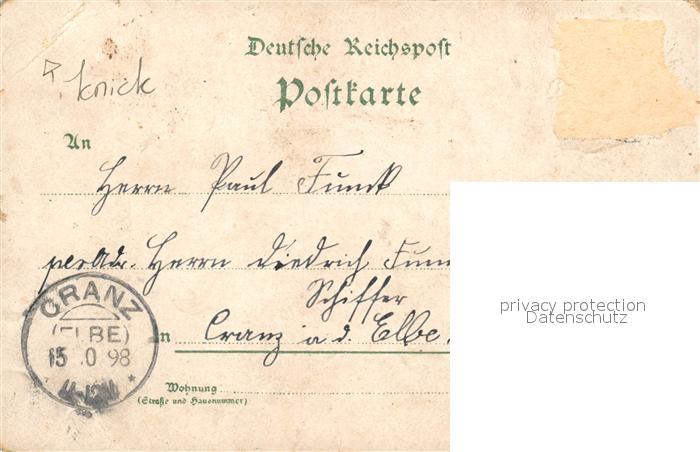 Deutsche Reichspost
Postkarte
knick
An
Herrn Paul Funck
per Adr. Herrn Diedrich Fun
Schiffer
in Cranz a d. Elbe.
CRANZ
(ELBE)
15 .0 98
Wohnung
(Straße und Hausnummer)
privacy protection
Datenschutz